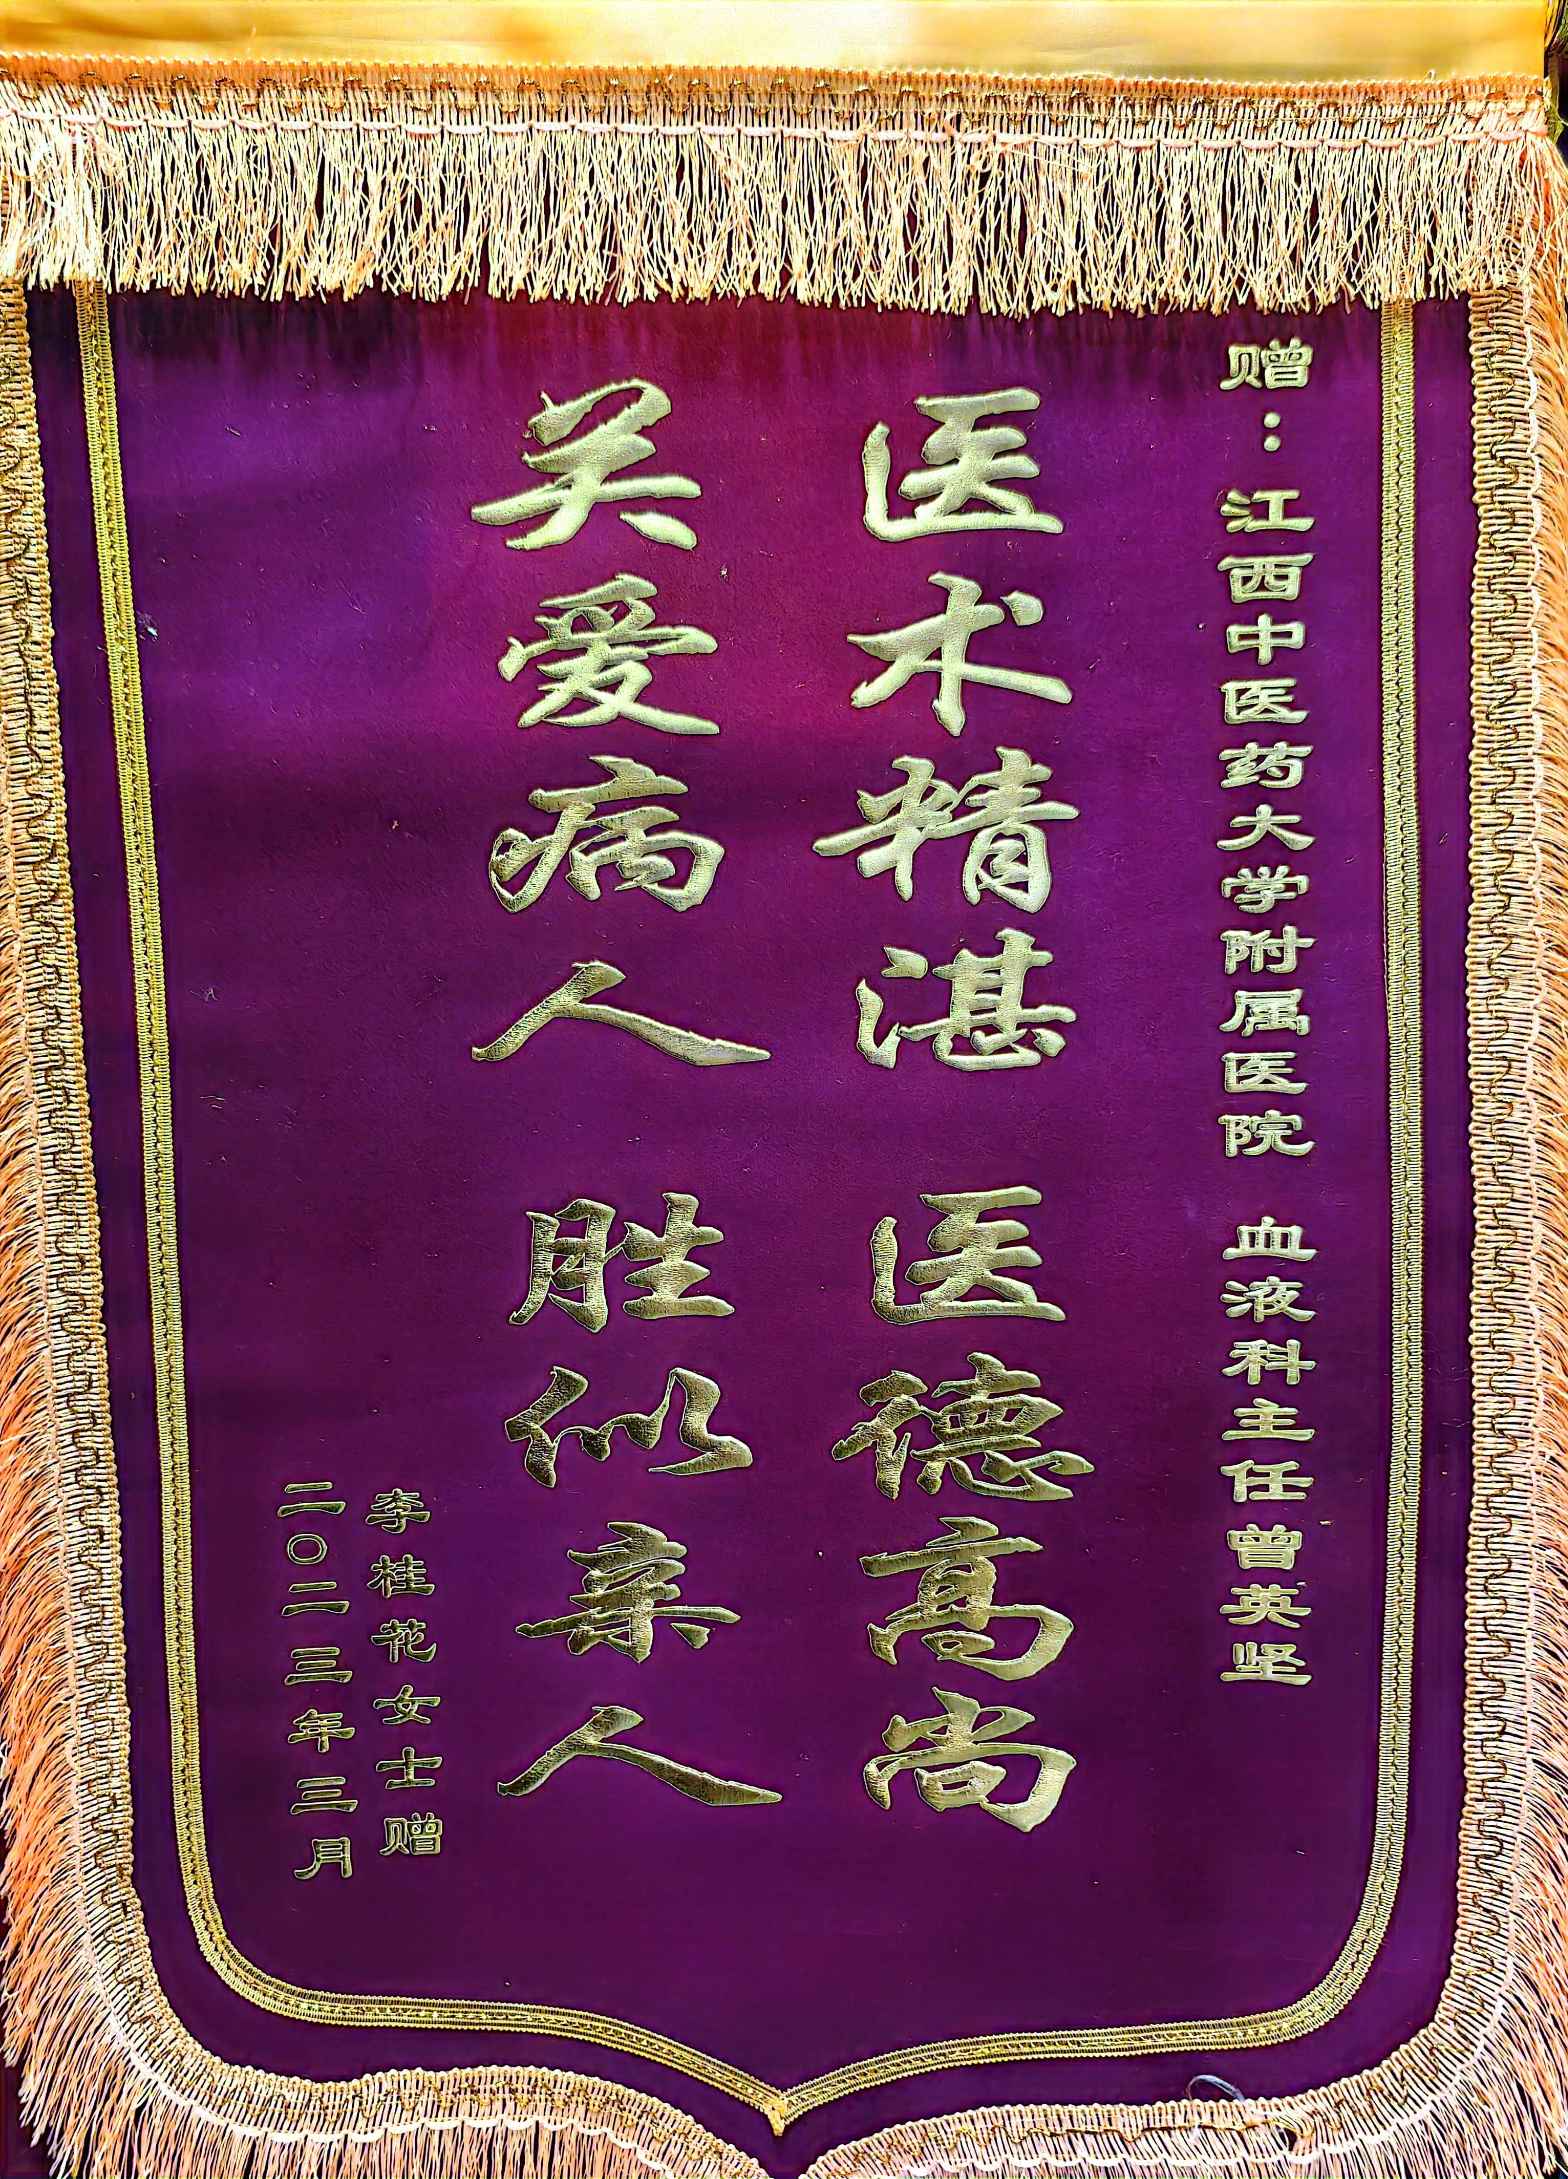 赠：江西中医药大学附属医院 血液科主任曾英坚
医术精湛 医德高尚
关爱病人 胜似亲人
李桂花女士赠
二〇二三年三月